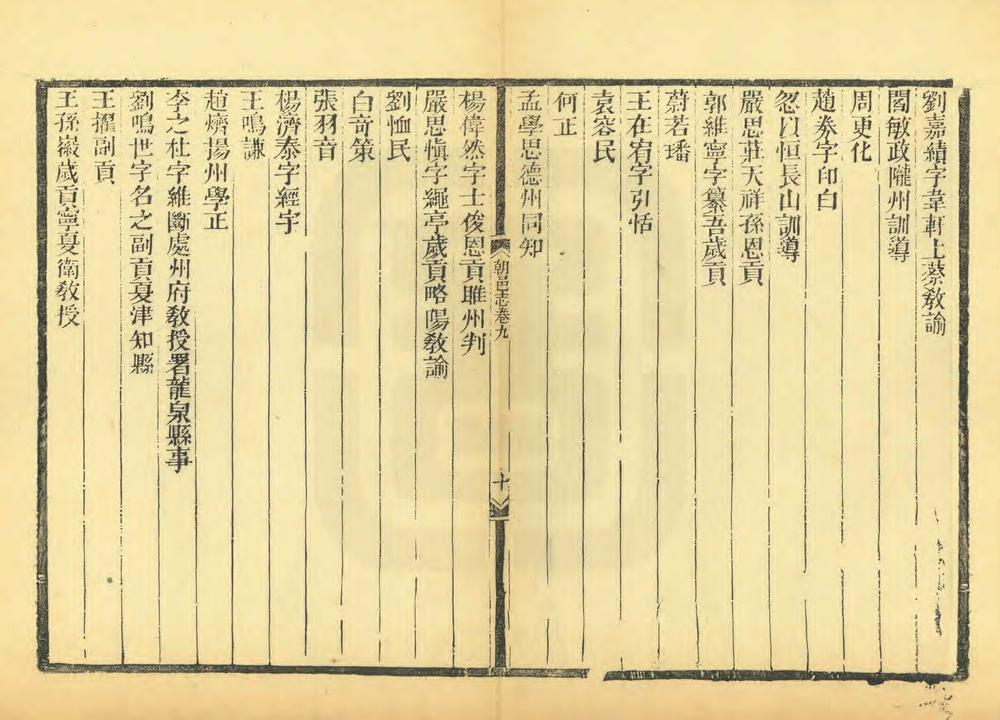 劉嘉績字韋軒上蔡敎諭
閻敏政隴州訓導
周更化
趙劵字印白
忽以恒長山訓導
嚴思莊天祥孫恩貢
郭維寧字纂吾歲貢
蔚若璠
王在宥字引恬
袁容民
何正
孟學思德州同知
朝邑志卷九
十
楊偉然字士俊恩貢雎州判
嚴思愼字繩亭歲貢略陽敎諭
劉恤民
白奇策
張羽音
楊濟泰字經宇
王鳴謙
趙爌揚州學正
李之杜字維斷處州府敎授署龍泉縣事
劉鳴世字名之副貢夏津知縣
王擢副貢
王孫嶶歲貢寧夏衛敎授